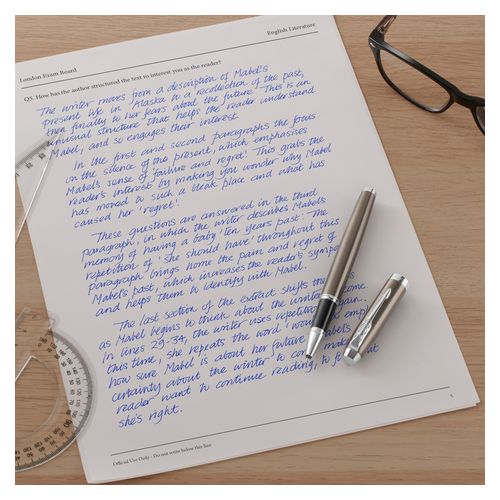 London Exam Board
English Literature
Q5. How has the author structured the text to interest you as the reader?
The writer moves from a description of Mabel's
present life in Alaska to a recollection of the past,
then finally to her fears about the future. This is an
unusual structure that helps the reader understand
Mabel, and so engages their interest.
In the first and second paragraphs the focus
on the silence of the present, which emphasises
Mabel's sense of failure and regret'. This grabs the
reader's interest by making you wonder why Mabel
has moved to such a bleak place and what has
caused her 'regret'.
These questions are answered in the third
paragraph, in which the writer describes Mabel's
memory of having a baby 'ten years past'. The
repetition of 'she should have' throughout this
paragraph brings home the pain and regret of
Mabel's past, which increases the reader's
and helps them to identify with Mabel.
The last section of the extract shifts
as Mabel begins to think about the winter
In lines 29-34, the writer uses repetition again.
this time, she repeats the word
how sure Mabel is about her future
certainty about the winter to
reader want to continue reading, to
she's right.
1
Official Use Only - Do not write below this line